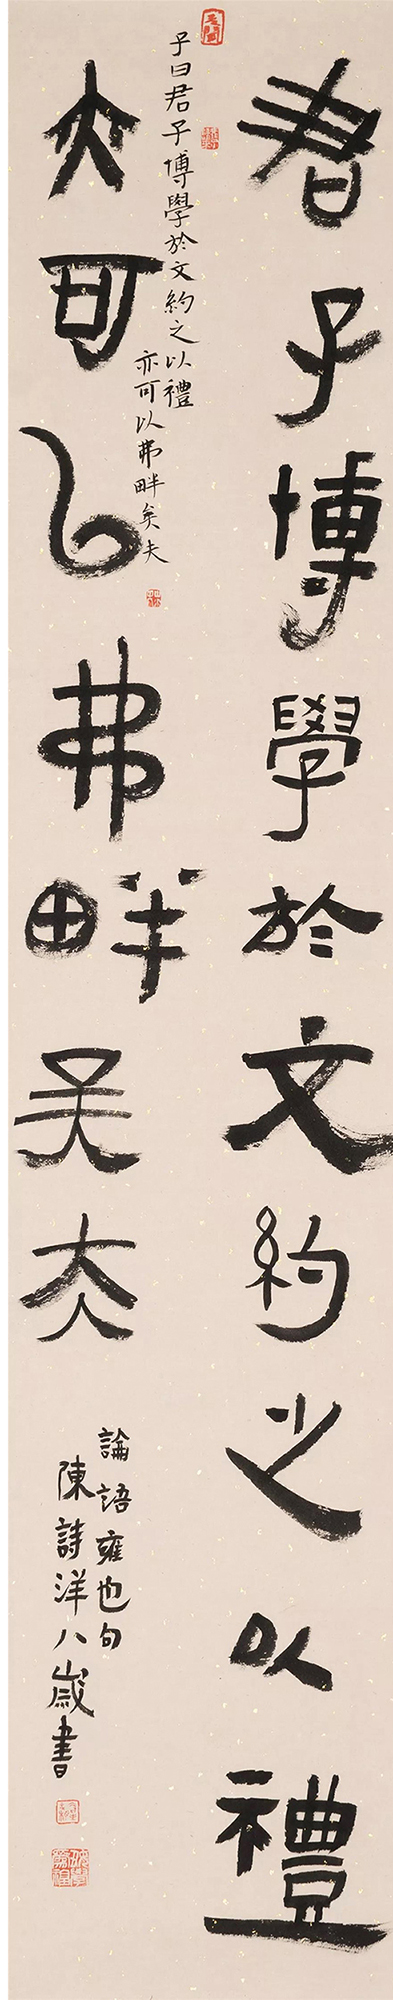 君子博學於文約之以禮
亦可以弗畔矣夫
子曰君子博學於文約之以禮
亦可以弗畔矣夫
論語雍也句
陳詩洋八歲書